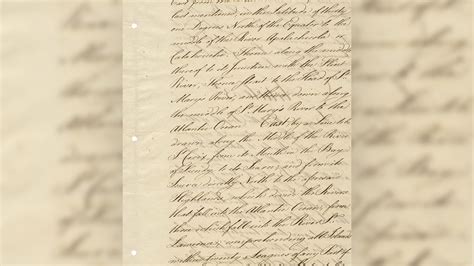 last mentioned, in the Latitude of thirty
one Degrees North of the Equator to the
middle of the River Apalachicola or
Catahouche; Thence along the middle
thereof to its junction with the Flint
River; thence strait to the Head of St.
Mary's River, and thence down along
the middle of St. Mary's River to the
Atlantic Ocean. East by a Line to be
drawn along the Middle of the River
St. Croix, from its Mouth in the Bay
of Fundy to its Source; and from its
Source directly North to the aforesaid
Highlands, which divide the Rivers
that fall into the Atlantic Ocean, from
those which fall into the River St.
Lawrence; comprehending all Islands
within twenty Leagues of any Part of